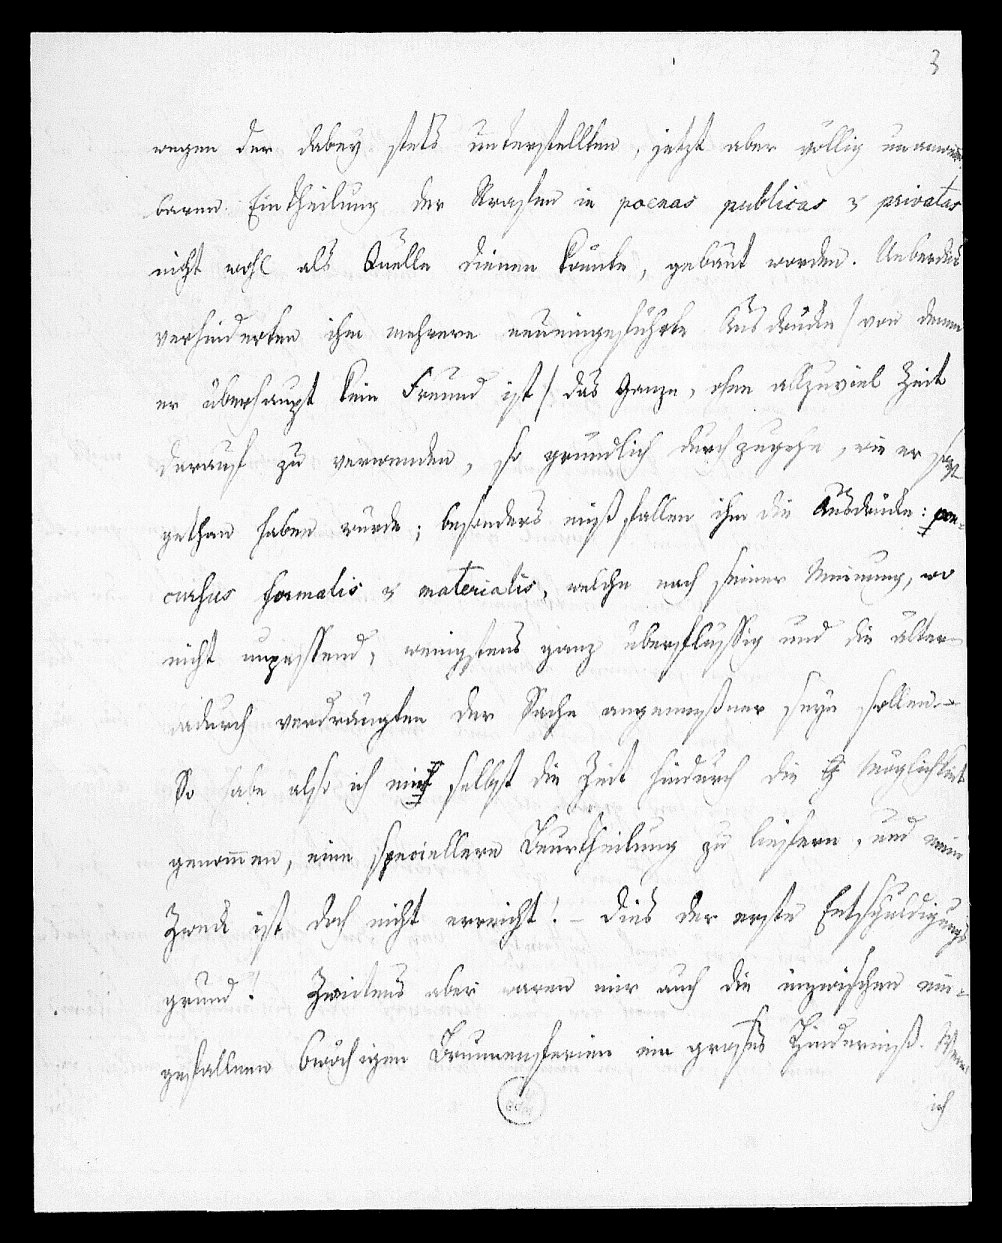 3
wegen der dabey stets unterstellten, jetzt aber völlig unanwend¬
baren Eintheilung der Strafen in poenas publicas & privatas
nicht wohl als Quelle dienen könnte, gebaut worden. Ueberdies
verhinderten ihn mehrere neueingeführte Ausdrücke /von denen
er überhaupt kein Freund ist/ das Ganze, ohne allzuviel Zeit
darauf zu verwenden, so gründlich durchzugehn, wie er sonst
gethan haben würde; besonders mißfallen ihm die Ausdrücke: con¬
cursus formalis & materialis, welche nach seiner Meinung, wo
nicht unpassend, wenigstens ganz überflüssig und die ältern
dadurch verdrängten der Sache angemeßner seyn sollen. –
So habe also ich mir selbst die Zeit hindurch die Möglichkeit
genommen, eine speciellere Beurtheilung zu liefern, und mein
Zweck ist doch nicht erreicht! – Dies der erste Entschuldigungs
grund! Zweitens aber waren mir auch die inzwischen ein¬
gefallenen 6wöchigen Brunnenferien ein großes Hinderniß. Wenn
ich